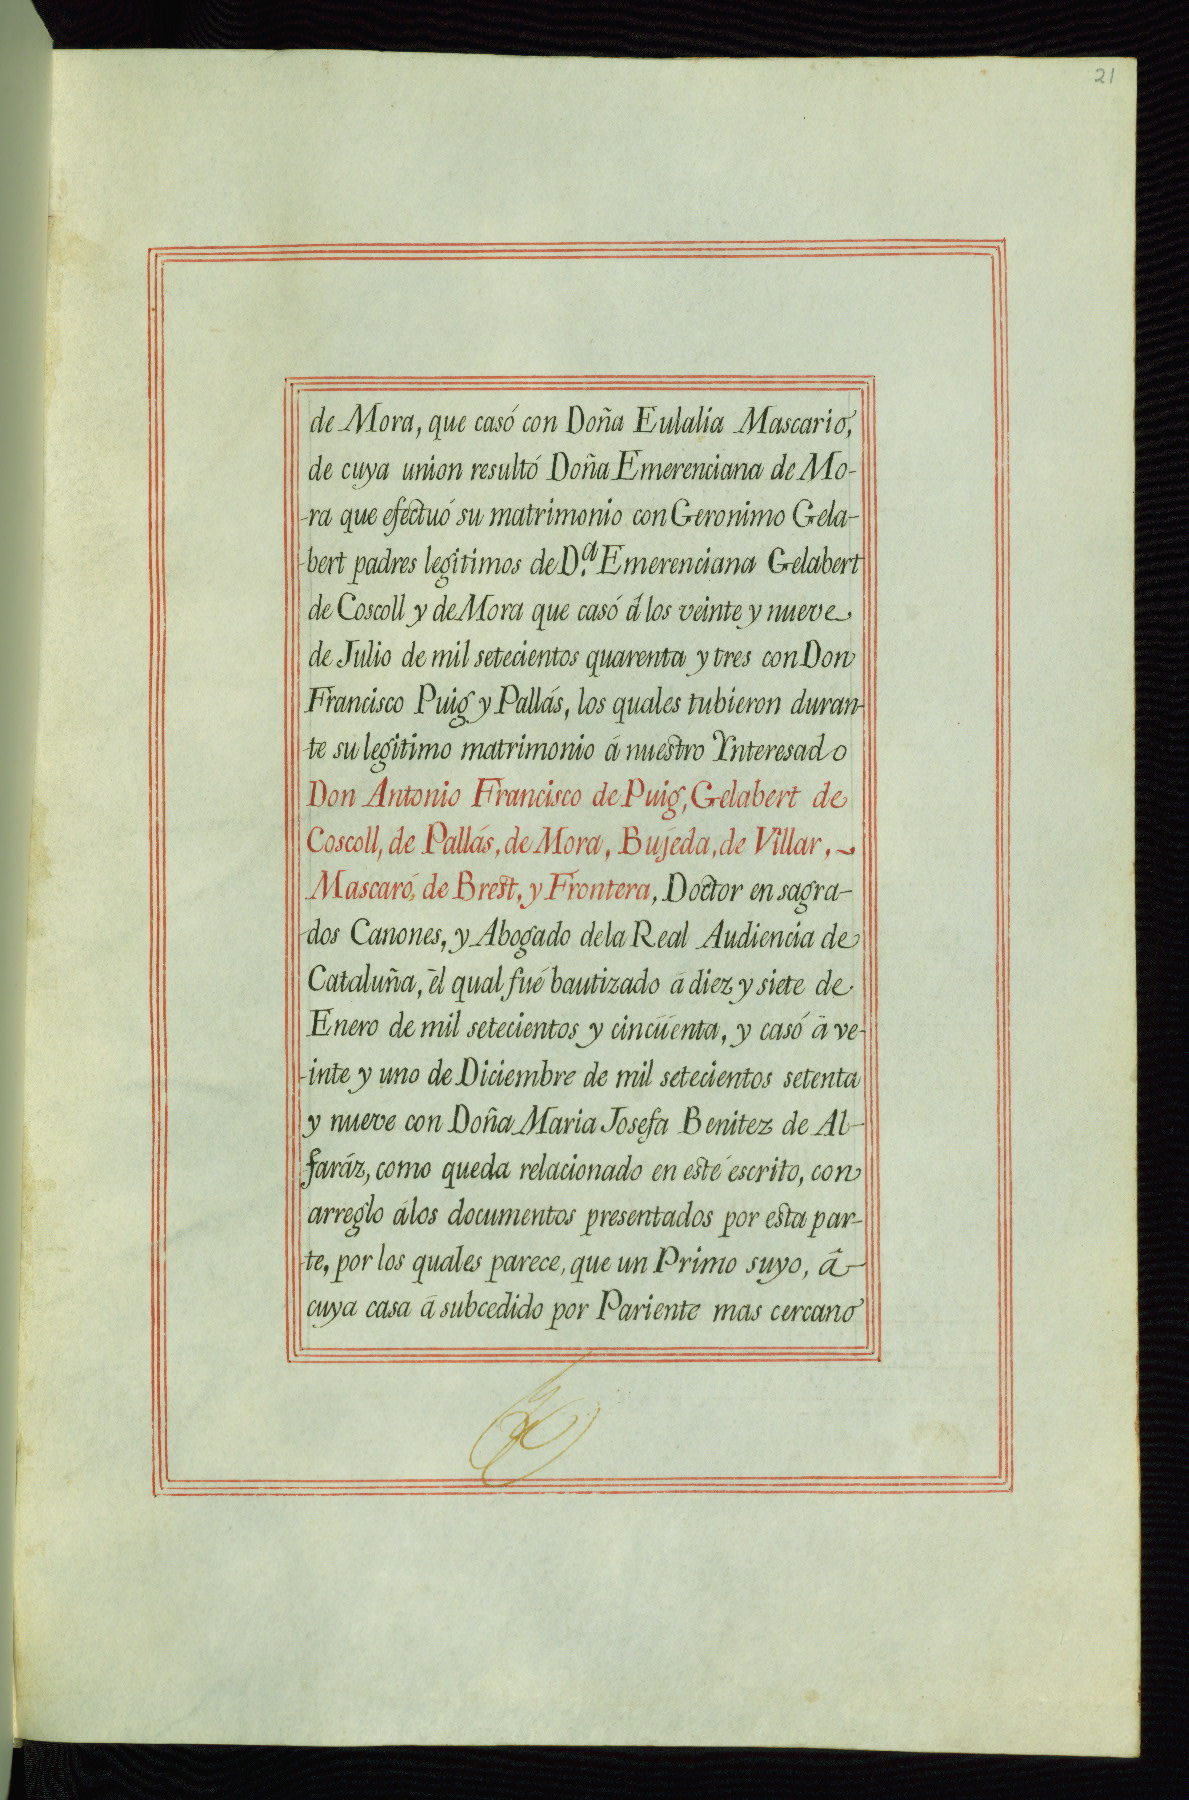 21
de Mora, que casó con Doña Eulalia Mascario,
de cuya union resultó Doña Emerenciana de Mo-
-ra que efectuó su matrimonio con Geronimo Gela-
-bert padres legitimos de D.ª Emerenciana Gelabert
de Coscoll y de Mora que casó á los veinte y nueve
de Julio de mil setecientos quarenta y tres con Don
Francisco Puig y Pallás, los quales tubieron duran-
-te su legitimo matrimonio á nuestro Ynteresado
Don Antonio Francisco de Puig, Gelabert de
Coscoll, de Pallás, de Mora, Bujeda, de Villar,
Mascaró, de Brest, y Frontera, Doctor en sagra-
-dos Canones, y Abogado dela Real Audiencia de
Cataluña, él qual fué bautizado á diez y siete de
Enero de mil setecientos y cincüenta, y casó á ve-
-inte y uno de Diciembre de mil setecientos setenta
y nueve con Doña Maria Josefa Benitez de Al-
faráz, como queda relacionado en esté escrito, con
arreglo álos documentos presentados por esta par-
-te, por los quales parece, que un Primo suyo, â
cuya casa á subcedido por Pariente mas cercano